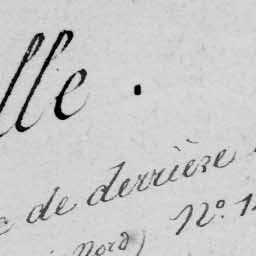 lle .
de derrière
Nord) Nº. 1